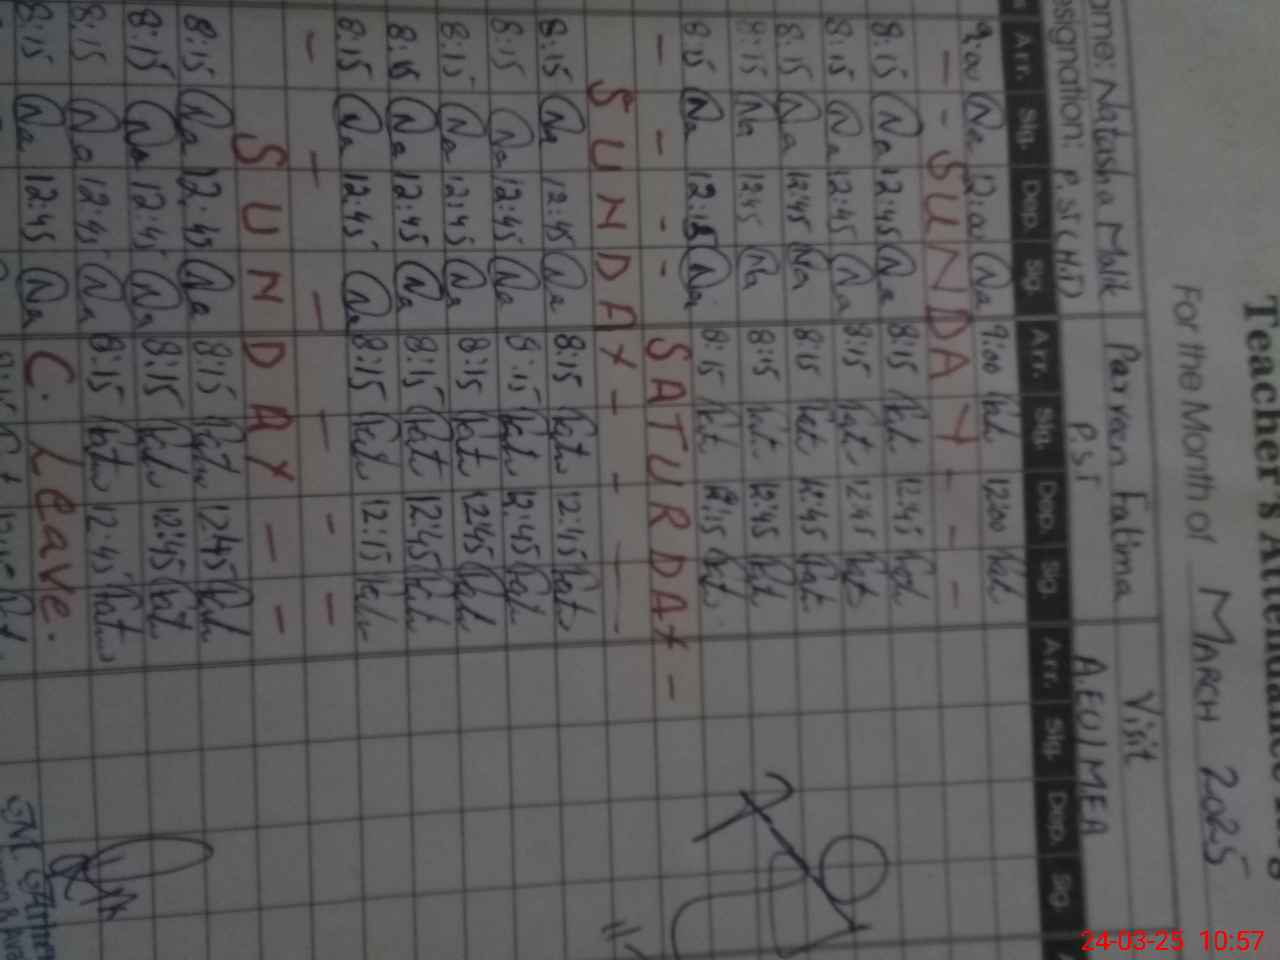 Teacher's Attendance
For the Month of MARCH 2025
ame: Natasha Malik Parveen Fatima Visit
esignation: P.ST (H.T) P.S.T A.EO/MEA
Arr. Sig. Dep. Sg. Arr. Sig. Dep. Sg. Arr. Sig. Dep. Sg.
9:00 Na 12:00 Na 9:00 Fat 12:00 Fat
- - SUNDAY - - -
8:15 Na 12:45 Na 8:15 Fat 12:45 Fat
8:15 Na 12:45 Na 8:15 Fat 12:45 Fat
8:15 Na 12:45 Na 8:15 Fat 12:45 Fat
8:15 Na 12:45 Na 8:15 Fat 12:45 Fat
8:15 Na 12:15 Na 8:15 Fat 12:15 Fat
- - - - SATURDAY -
SUNDAY - - -
8:15 Na 12:45 Na 8:15 Fat 12:45 Fat
8:15 Na 12:45 Na 8:15 Fat 12:45 Fat
8:15 Na 12:45 Na 8:15 Fat 12:45 Fat
8:15 Na 12:45 Na 8:15 Fat 12:45 Fat
8:15 Na 12:45 Na 8:15 Fat 12:15 Fat
- - - - - -
SUNDAY - -
8:15 Na 12:45 Na 8:15 Fat 12:45 Fat
8:15 Na 12:45 Na 8:15 Fat 12:45 Fat
8:15 Na 12:45 Na 8:15 Fat 12:45 Fat
8:15 Na 12:45 Na C. Leave.
24-03-25 10:57